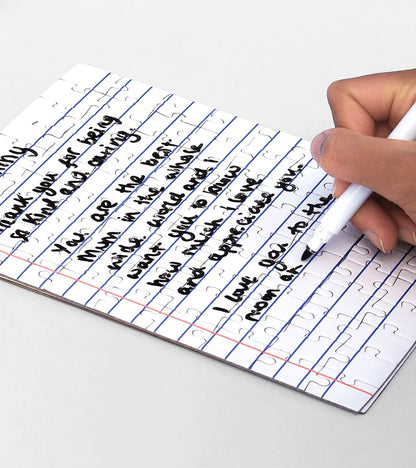 Thank you for being
so kind and caring.
You are the best
Mum in the whole
wide world and I
want you to know
how much I love
and appreciated you.
I love you to the
moon an